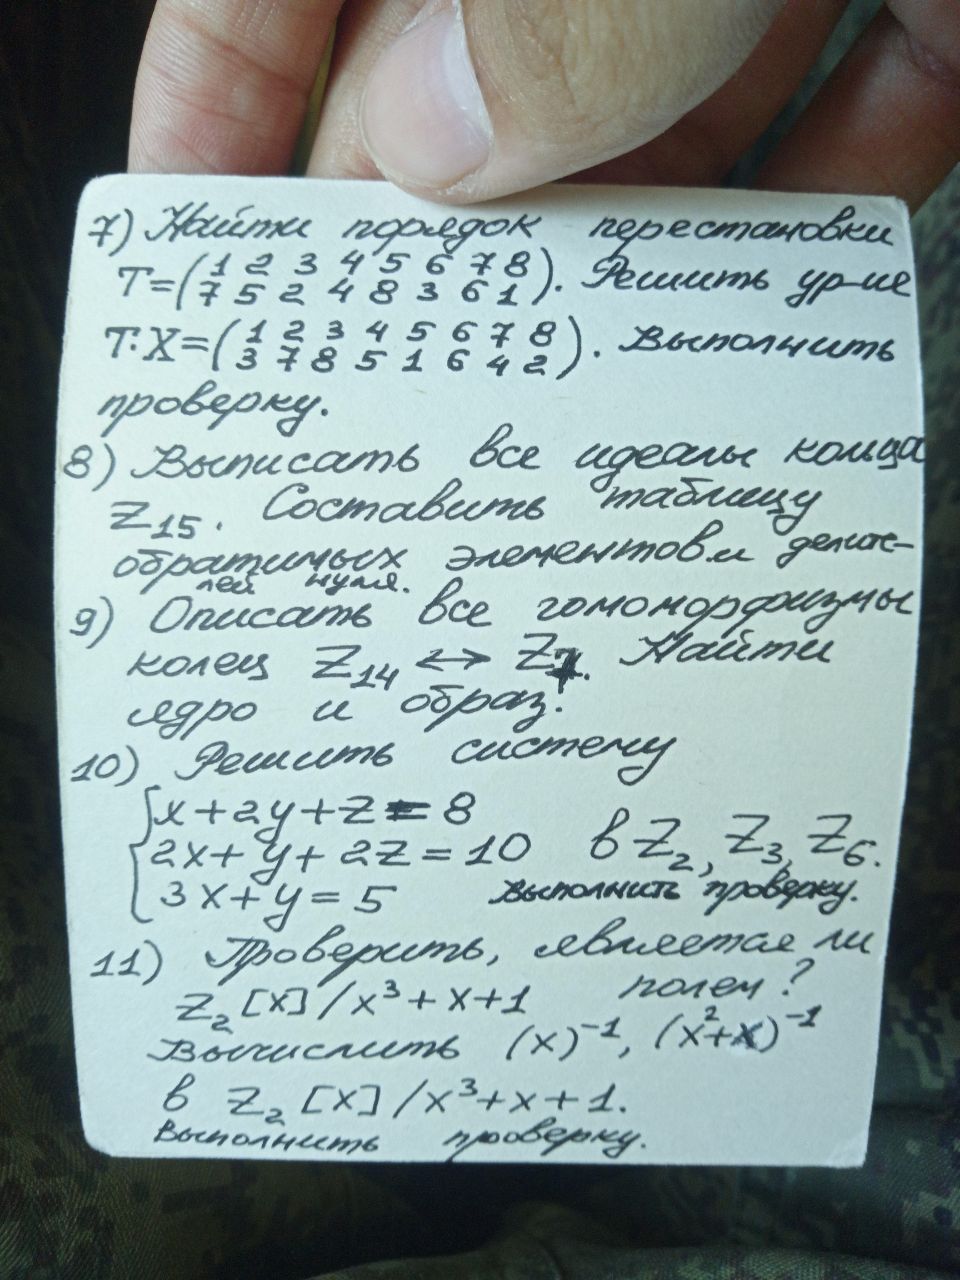 7) Найти порядок перестановки
T=(1 2 3 4 5 6 7 8
7 5 2 4 8 3 6 1). Решить ур-ие
T·X=(1 2 3 4 5 6 7 8
3 7 8 5 1 6 4 2). Выполнить
проверку.
8) Выписать все идеалы кольца
Z₁₅. Составить таблицу
обратимых элементов и делите-
лей нуля.
9) Описать все гомоморфизмы
колец Z₁₄ ↔ Z₇. Найти
ядро и образ.
10) Решить систему
x+2y+z=8
2x+y+2z=10 в Z₂, Z₃, Z₆.
3x+y=5 Выполнить проверку.
11) Проверить, является ли
Z₂[x]/x³+x+1 полем?
Вычислить (x)⁻¹, (x²+x)⁻¹
в Z₂[x]/x³+x+1.
Выполнить проверку.